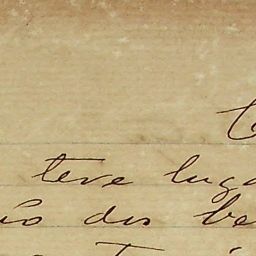 teve luga
ão dos be